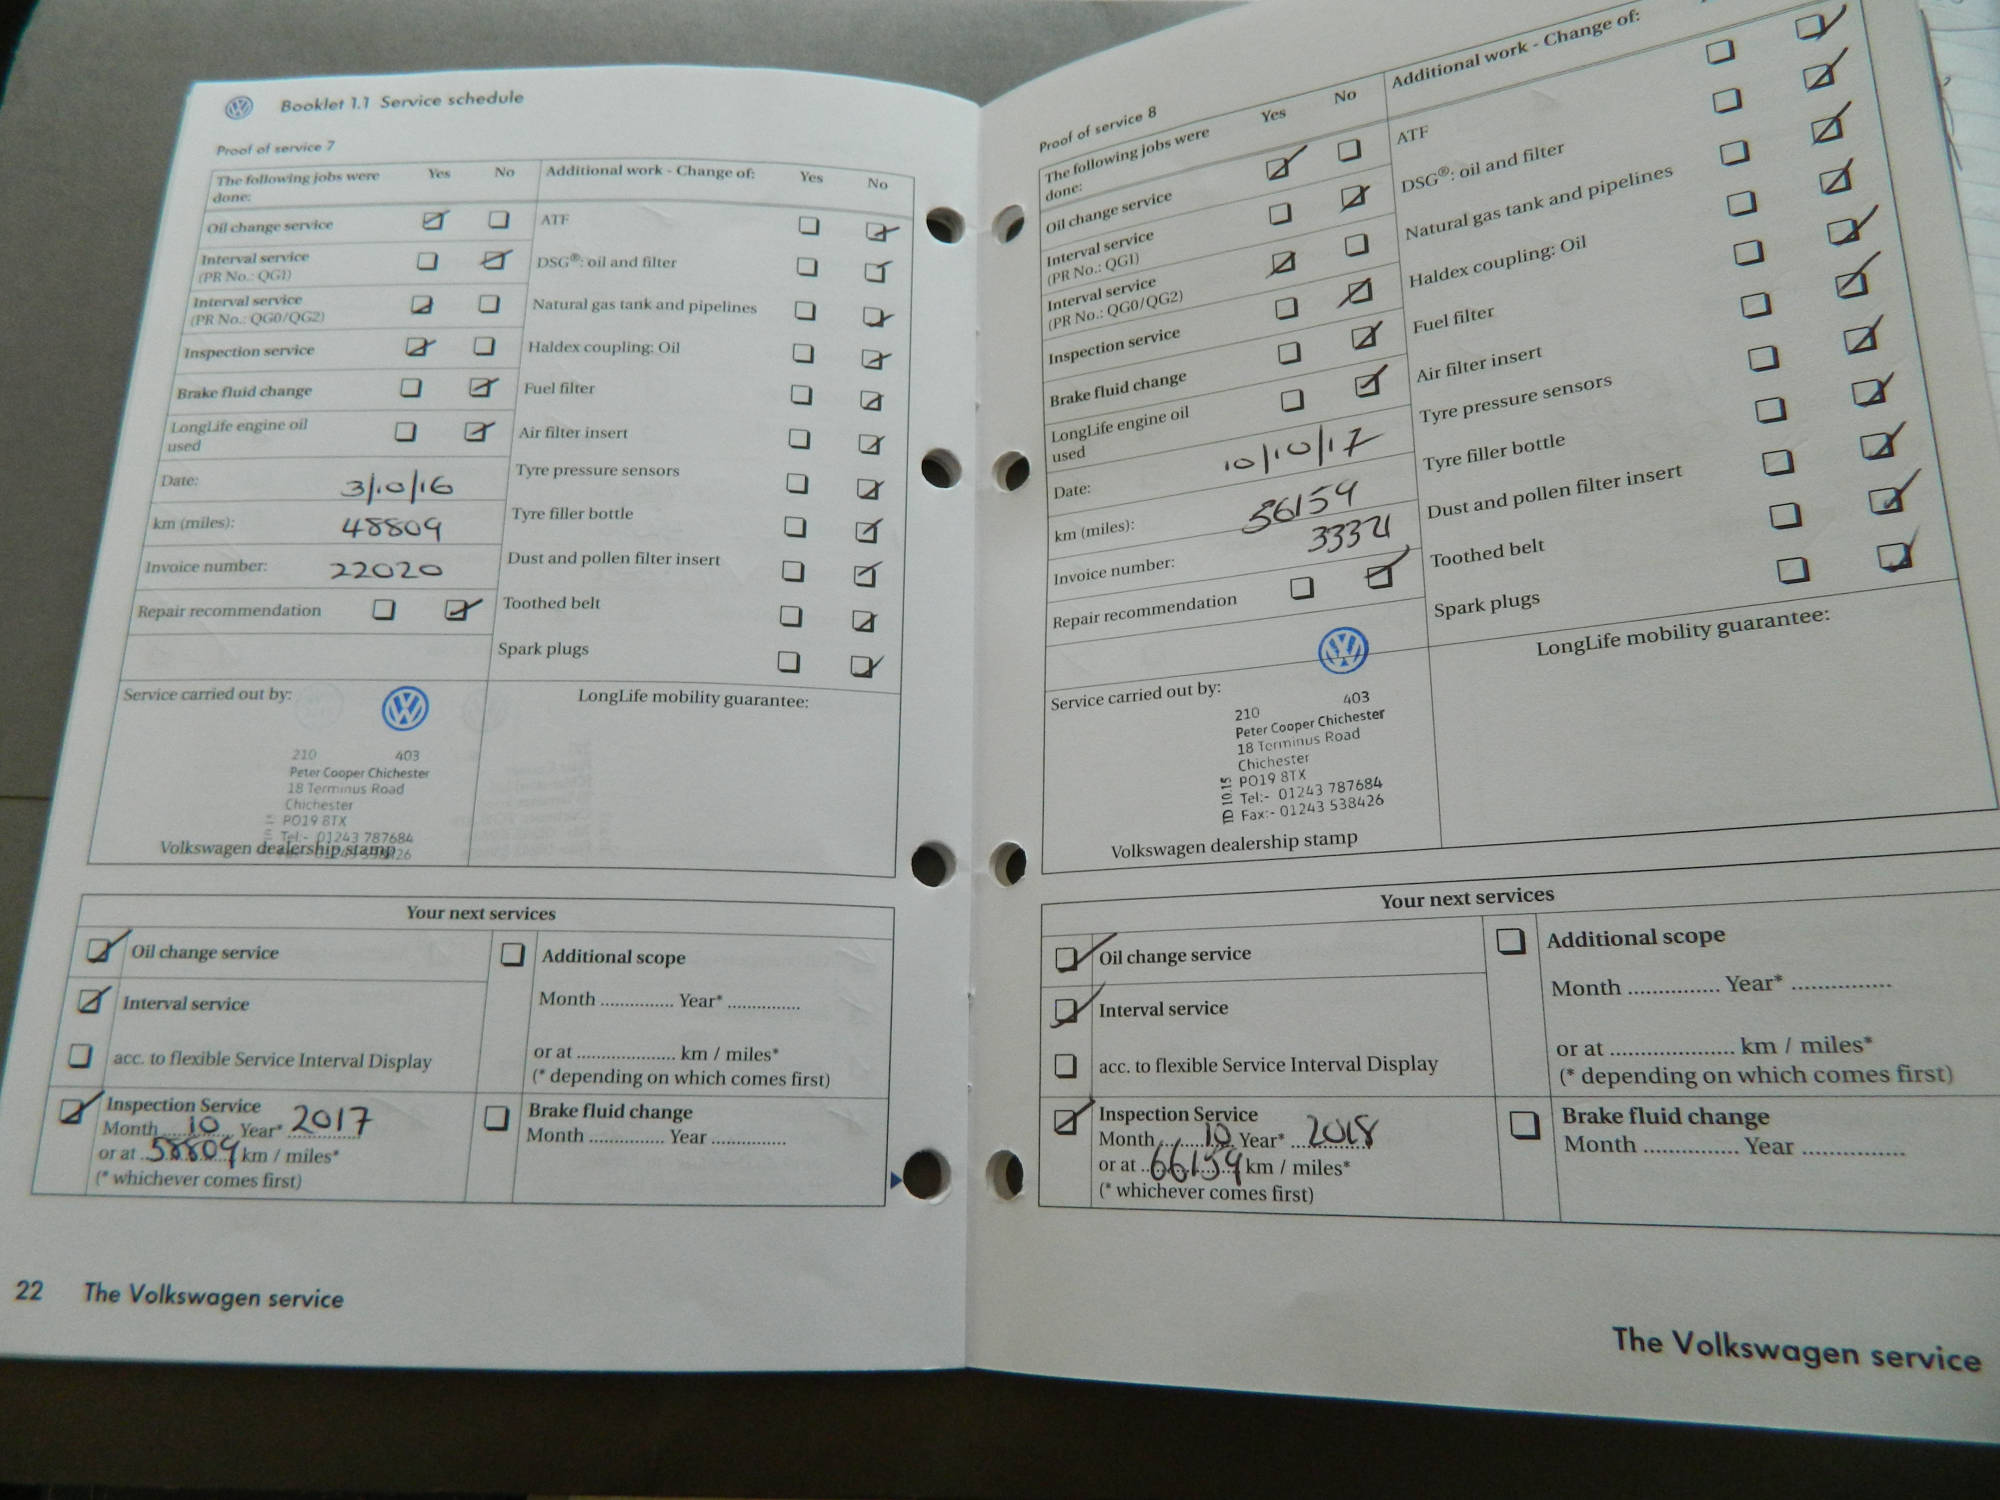 Booklet 1.1 Service schedule
Proof of service 7
The following jobs were done: Yes No Additional work - Change of: Yes No
Oil change service ATF
Interval service DSG®: oil and filter
(PR No.: QG1)
Interval service Natural gas tank and pipelines
(PR No.: QG0/QG2)
Inspection service Haldex coupling: Oil
Brake fluid change Fuel filter
LongLife engine oil used Air filter insert
Date: 3/10/16 Tyre pressure sensors
km (miles): 48809 Tyre filler bottle
Invoice number: 22020 Dust and pollen filter insert
Repair recommendation Toothed belt
Spark plugs
Service carried out by: LongLife mobility guarantee:
210 403
Peter Cooper Chichester
18 Terminus Road
Chichester
PO19 8TX
Tel:- 01243 787684
Volkswagen dealership stamp
Your next services
Oil change service Additional scope
Interval service Month ............... Year* ...............
acc. to flexible Service Interval Display or at .................... km / miles*
(* depending on which comes first)
Inspection Service Brake fluid change
Month 10 Year* 2017 Month ............... Year ...............
or at 58809 km / miles*
(* whichever comes first)
22 The Volkswagen service
Proof of service 8
The following jobs were done: Yes No Additional work - Change of:
Oil change service ATF
Interval service DSG®: oil and filter
(PR No.: QG1)
Interval service Natural gas tank and pipelines
(PR No.: QG0/QG2)
Inspection service Haldex coupling: Oil
Brake fluid change Fuel filter
LongLife engine oil used Air filter insert
Date: 10/10/17 Tyre pressure sensors
km (miles): 56159 Tyre filler bottle
Invoice number: Dust and pollen filter insert
Repair recommendation Toothed belt
Spark plugs
Service carried out by: LongLife mobility guarantee:
210 403
Peter Cooper Chichester
18 Terminus Road
Chichester
PO19 8TX
Tel:- 01243 787684
Fax:- 01243 538426
ID 10.15
Volkswagen dealership stamp
Your next services
Oil change service Additional scope
Interval service Month ............... Year* ...............
acc. to flexible Service Interval Display or at .................... km / miles*
(* depending on which comes first)
Inspection Service Brake fluid change
Month 10 Year* 2018 Month ............... Year ...............
or at 66159 km / miles*
(* whichever comes first)
The Volkswagen service